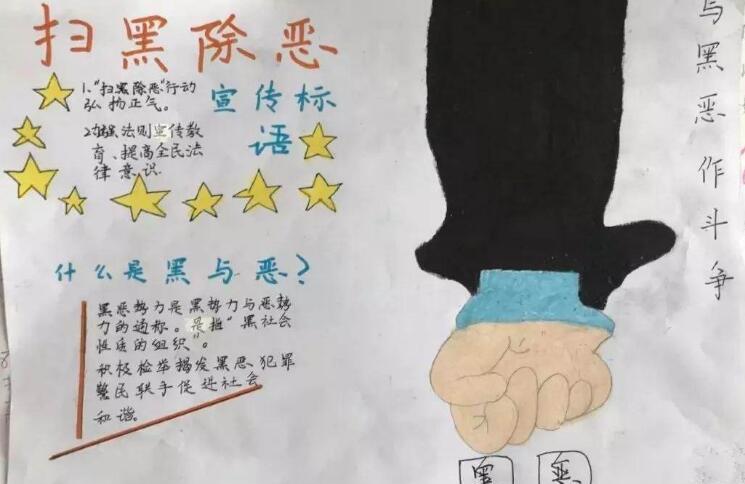 扫黑除恶
1."扫黑除恶"行动
弘扬正气。
宣传标
语
2.加强法则宣传教
育、提高全民法
律意识.
什么是黑与恶?
黑恶势力是黑势力与恶势
力的通称。是指"黑社会
性质的组织"。
积极检举揭发黑恶犯罪
警民联手促进社会
和谐。
与黑恶作斗争
黑 恶